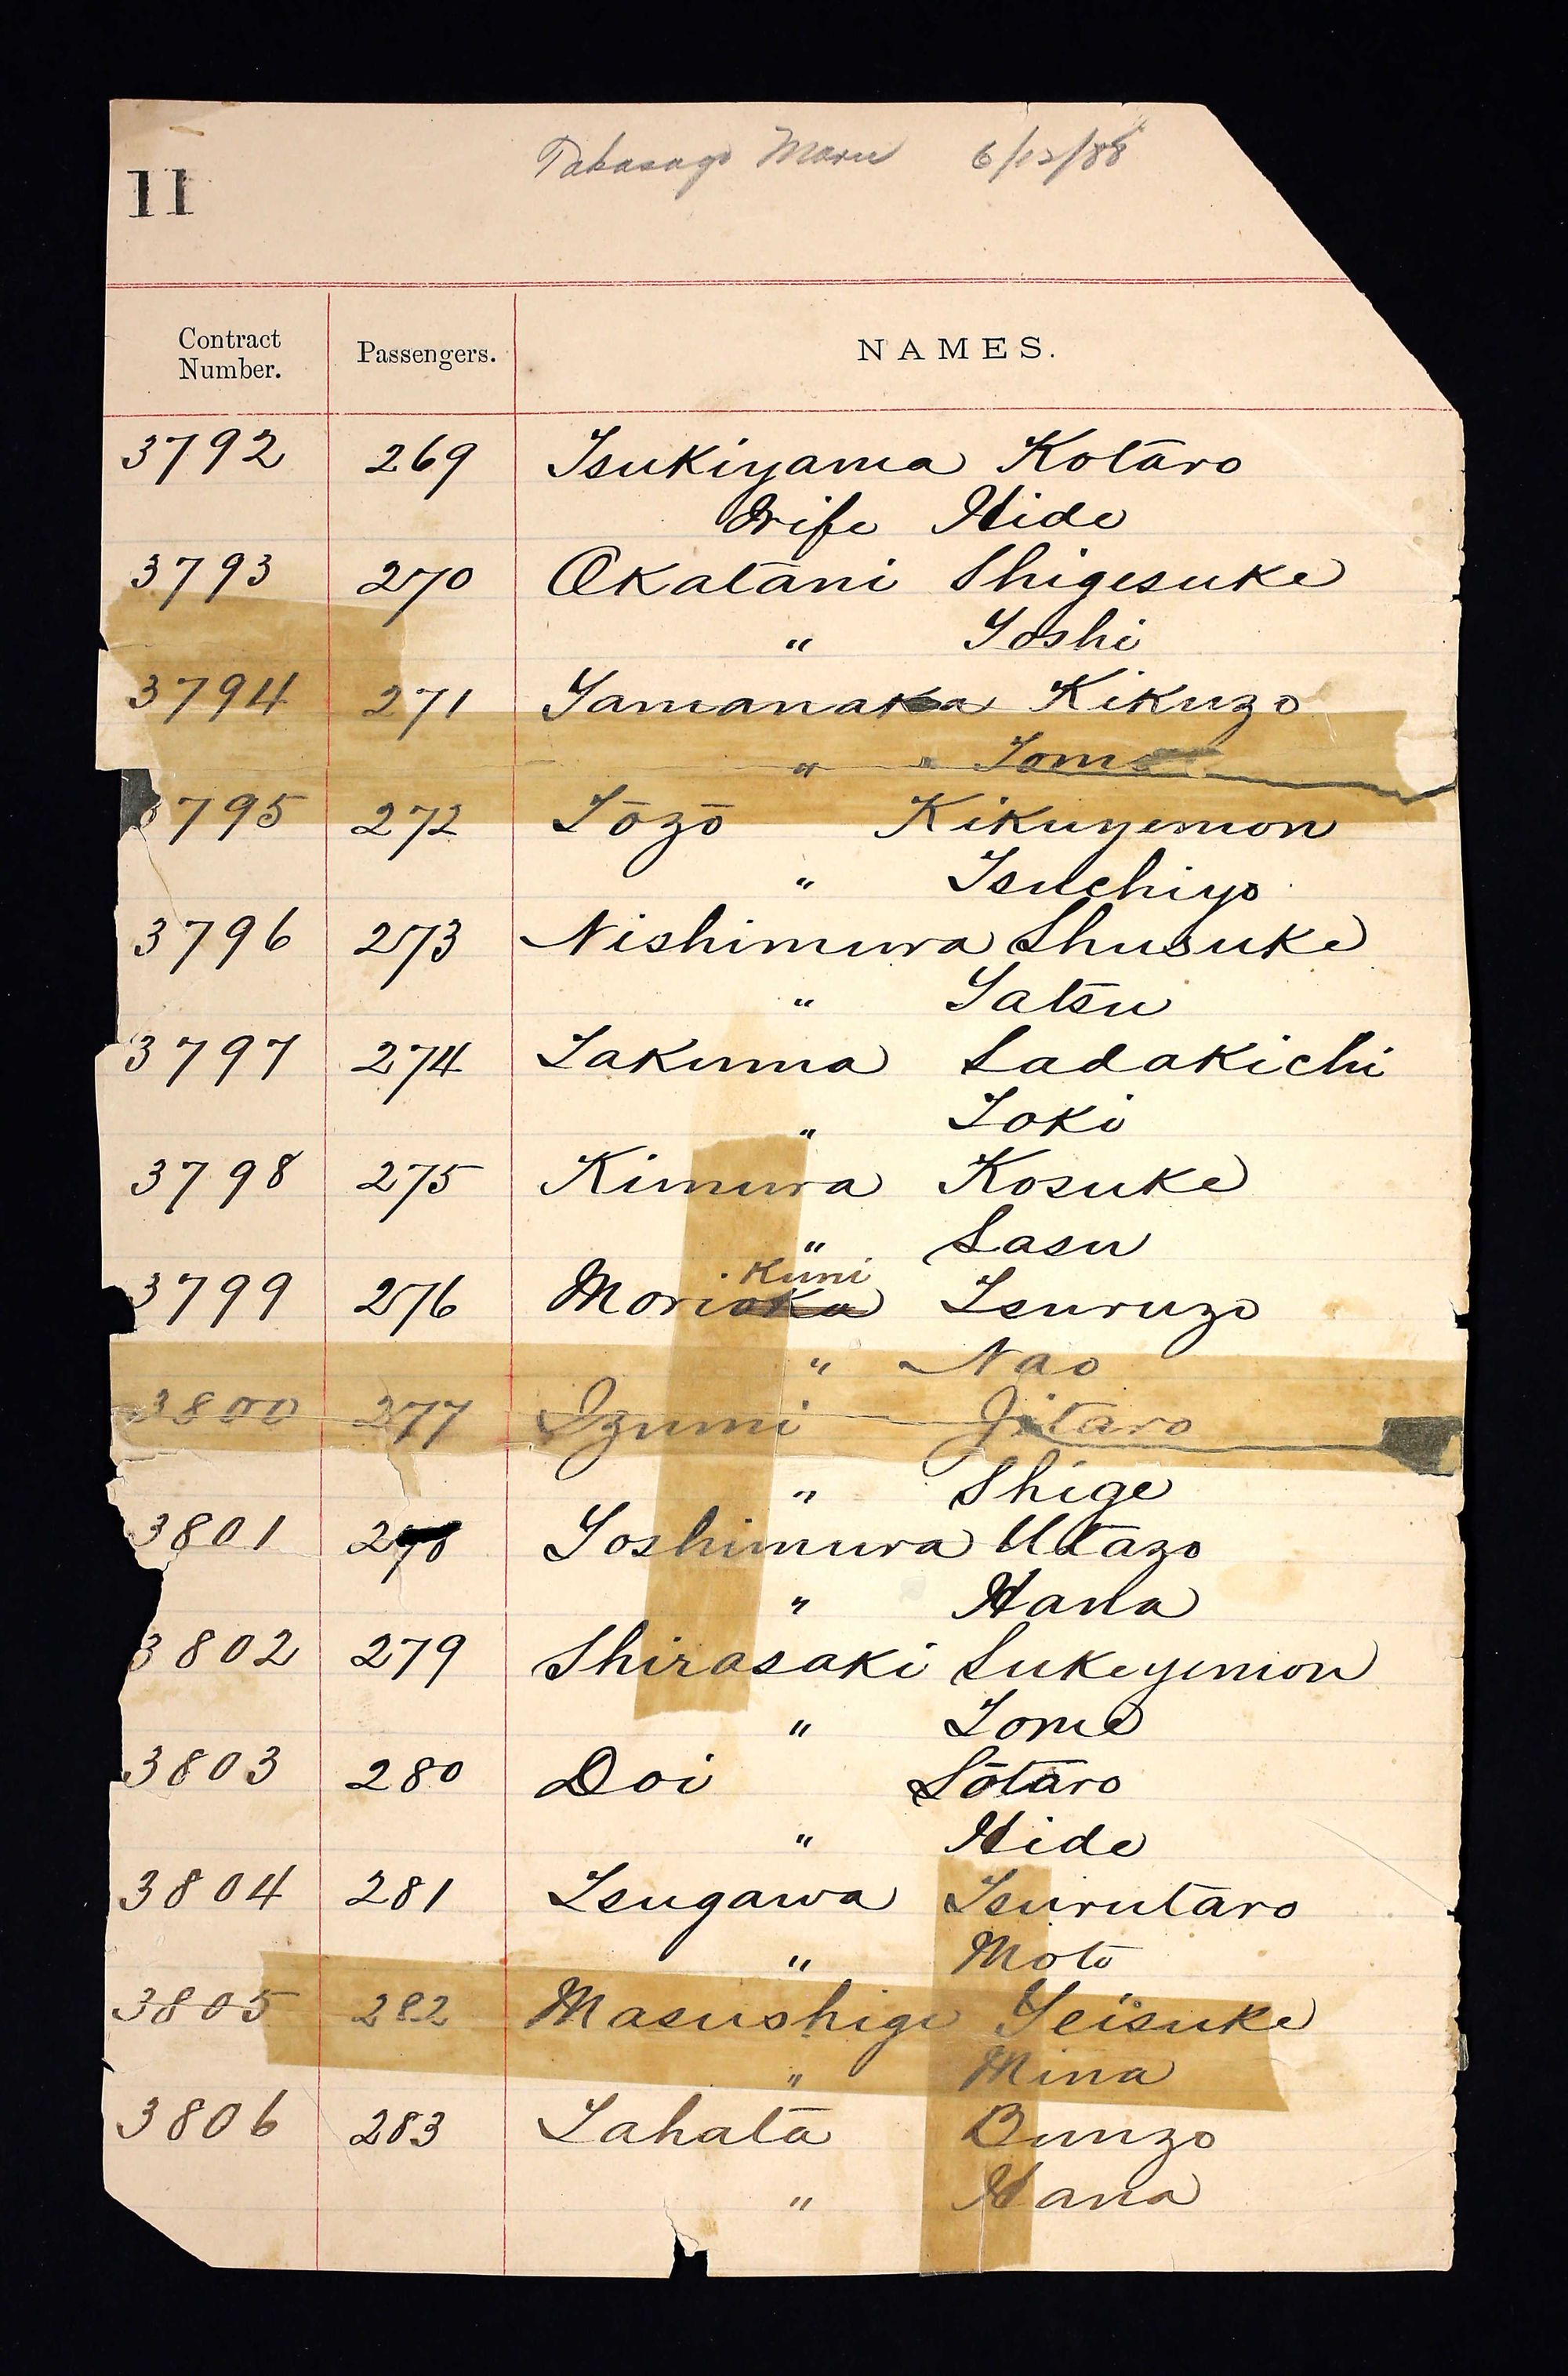 11
Takasago Maru 6/12/88
Contract Number. Passengers. NAMES.
3792 269 Tsukiyama Kotaro
Wife Hide
3793 270 Okatani Shigesuke
" Yoshi
3794 271 Yamanaka Kikuzo
" Tome
3795 272 Tōzō Kikuyemon
" Tsuchiyo
3796 273 Nishimura Shusuke
" Yatsu
3797 274 Takuma Sadakichi
" Toki
3798 275 Kimura Kosuke
" Sasu
Kuni
3799 276 Morioka Tsuruzo
" Nao
3800 277 Izumi Jitaro
" Shige
3801 278 Yoshimura Utazo
" Hana
3802 279 Shirasaki Sukeyemon
" Tome
3803 280 Doi Sōtaro
" Hide
3804 281 Tsugawa Tsurutaro
" Moto
3805 282 Masushige Yeisuke
" Mina
3806 283 Tahata Bunzo
" Hana